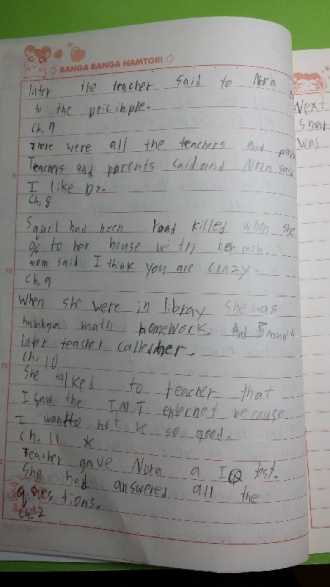 BANGA BANGA HAMTORI
later the teacher said to Nora
to the pricibple.
Ch. 7
There were all the teachers and
Teachers and parents said and Nora said
I like Dr.
Ch. 8
Squril had been road killed when she
go to her house with her mom.
mom said I think you are crazy.
Ch. 9
When she were in library she was
math homework. And 5 minute
later teacher called her.
Ch. 10
She talked to teacher that
I saw the INT enternet because
I want to not be so good.
Ch. 11 *
Teacher gave Nora a IQ test.
She had answered all the
questions.
Ch. 12
Next
smar
was